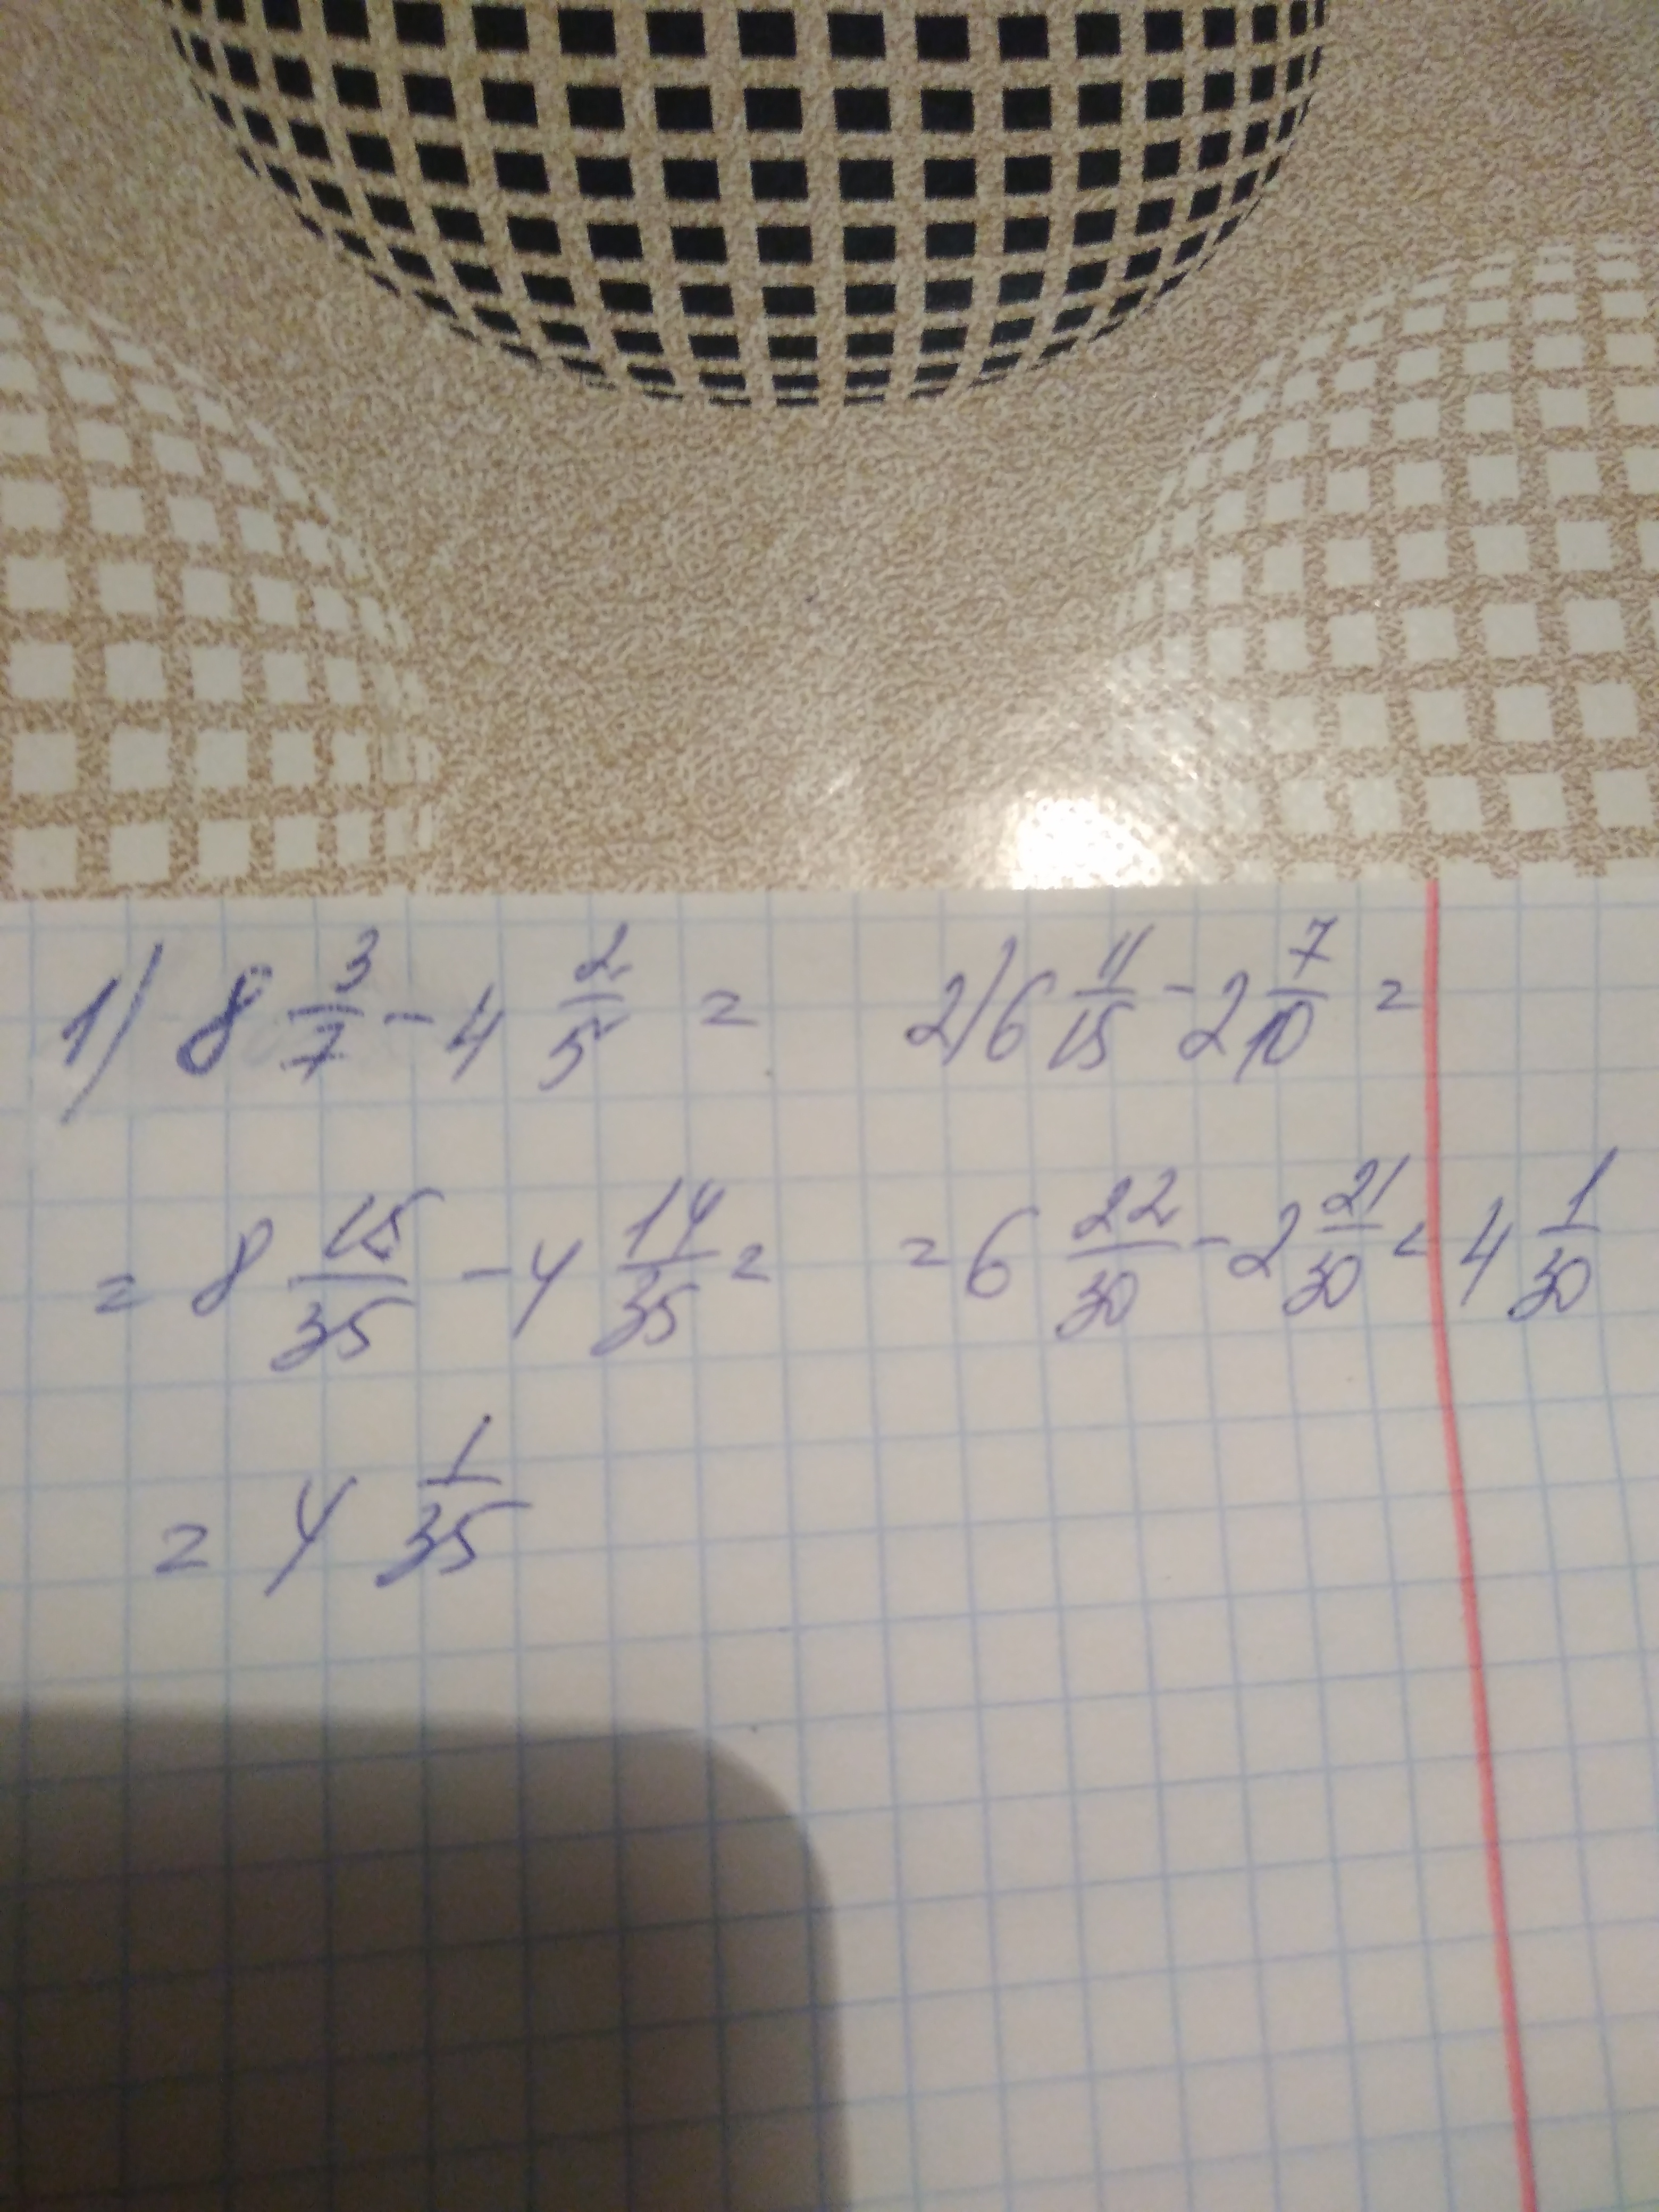 1) 8 3/7 - 4 2/5 =
= 8 15/35 - 4 14/35 =
= 4 1/35
2) 6 11/15 - 2 7/10 =
= 6 22/30 - 2 21/30 = 4 1/30